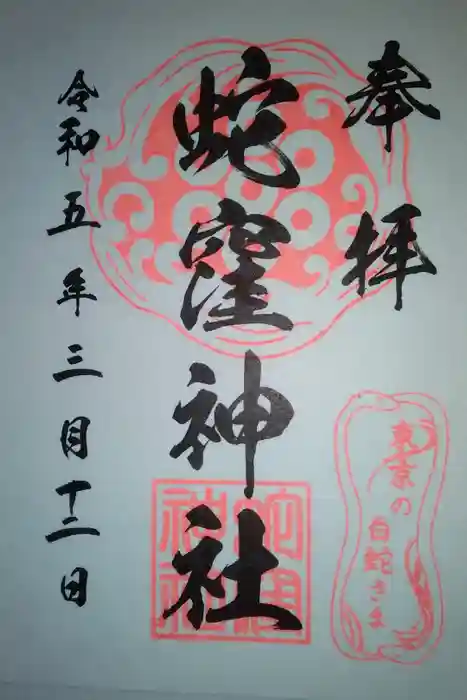 奉拝
東京の
白蛇さま
蛇窪神社
令和五年三月十二日